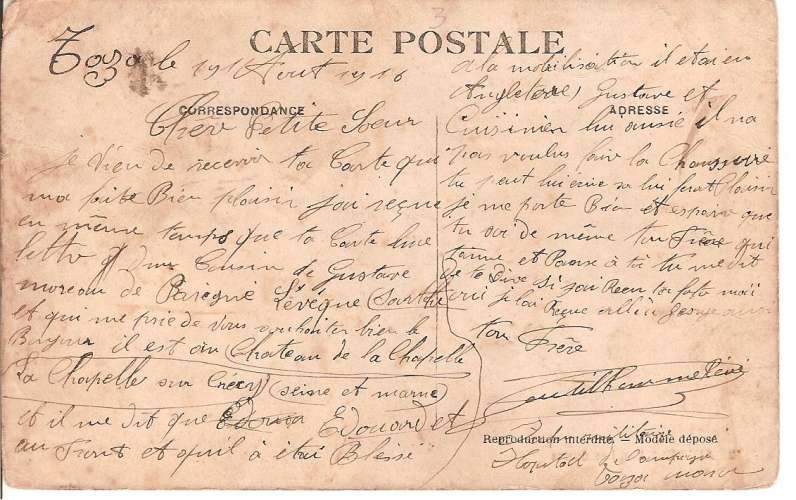 CARTE POSTALE
Taza le 191 Aout 1916
CORRESPONDANCE
Cher Petite Sœur
je vien de recevoir ta Carte qui
ma faite Bien plaisir jai reçue
en même temps que ta Carte une
lettre d un Cousin de Gustave
moreau de Parcgné L'évêque (Sarthe
et qui me prie de vous souhaiter bien le
Bonjour il est au Chateau de la Chapelle
La Chapelle sur Crécy (seine et marne)
et il me dit que Edouard et
au Front et quil à étai Blessé
a la mobilisation il etai en
Angleterre, Gustave et
ADRESSE
Cuisinier lui aussi il na
pas voulus fair la Chaussure
tu peut lui écrire sa lui ferat Plaisir
je me porte Bien et espaire que
tu soi de même ton Frère qui
taime et Panse à toi tu me dit
de te Dire si jai Reçu ta foto moi
oui je lai Reçue
ton Frère
Reproduction interdite. Modèle déposé
militaire
Hopital de Campagne
Taza Maroc